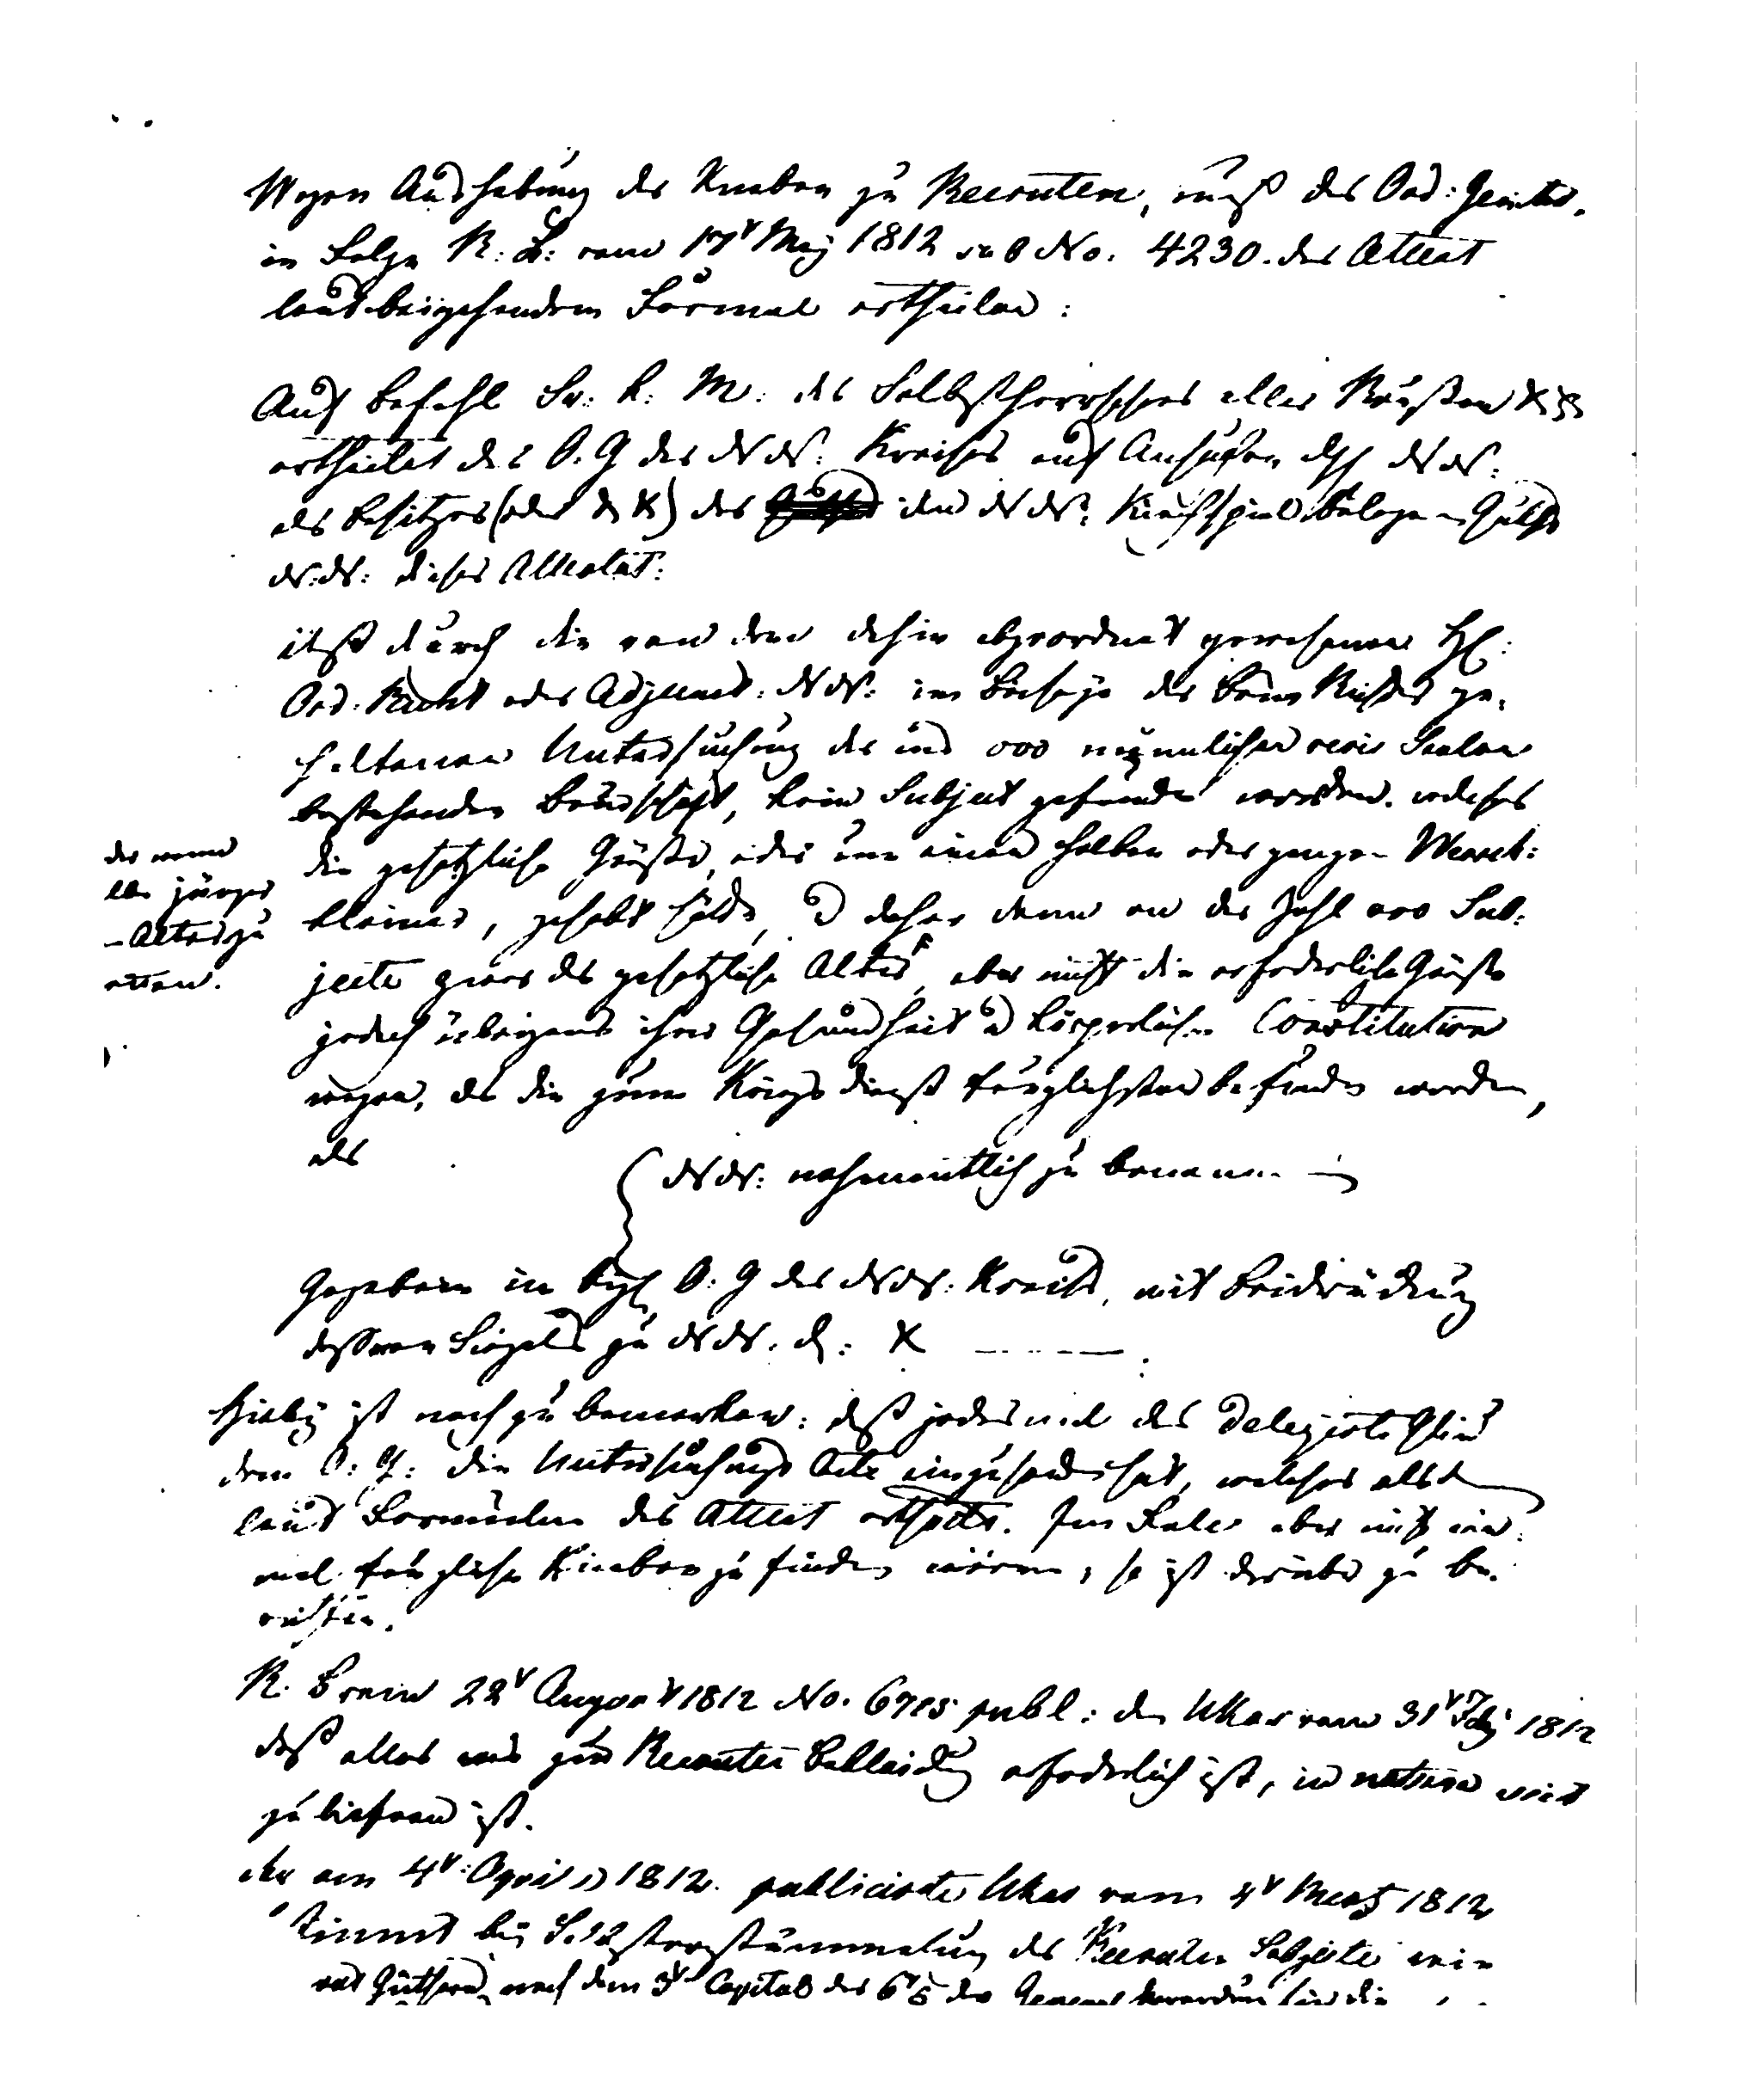 Wegen Aushebung der Knaben zu Recruten, muß das Ord: Gericht,
in Folge R. B: vom 17t May 1812 sub No. 4230. das Attest
laut beigehendem Formul ertheilen:
Auf Befehl Sr. K. M. des Selbstherrschers aller Reußen
ertheilet das O. G des NN. Kreises auf Ansuchen des NN.
als Besitzers (oder) des im NN. Kirchspiel belegen Guthes
N.N: dieses Attestat:
daß durch die von dem dahin abgeordnet gewesenen H:
Ord. Richt oder Adjunct. NN: im Beiseyn des Kirchen ge-
haltenen Untersuchung der aus 000 männlichen revis Seelen
bestehenden Bauerschaft, kein Subject gefunden worden. welches
die gesetzliche Größe, oder um einen halben oder ganzen Wersch:
kleiner, gehabt hätte, daher denn an der Zahl 000 Sub:
jecte zwar das gesetzliche Alter, aber nicht die erforderliche Größe
jedoch übrigens ihrer Gesundheit u körperlichen Constitution
wegen, als die zum Kriegsdienst tauglichsten befunden worden,
als
NN: nahmentlich zu benennen
Gegeben im O: G des NN: Kreises, mit Beidrückung
dessen Siegels zu NN. d:
Hiebey ist noch zu bemerken: daß jedesmal das delegirte Glied
dem O: G: die Untersuchungs Acte eingesandt hat, welches alsdann
laut Formular das Attest ertheilt. Im Falle aber nicht ein-
mal taugliche Knaben zu finden wären, so ist darüber zu be-
richten.
R. B vom 22t August 1812 No. 6715 publ: den Ukas vom 31t July 1812
daß alles was zur Recruten Bekleidung erforderlich ist, in natura
zu liefern ist.
der am 4t: April 1812. publicirte Ukas vom 4t Mertz 1812
stimmt bey Selbstverstümmelung der Recruten Subjecte
nach dem 3t Capitel des 6t § der General
der wenn
jünger
Alter zu